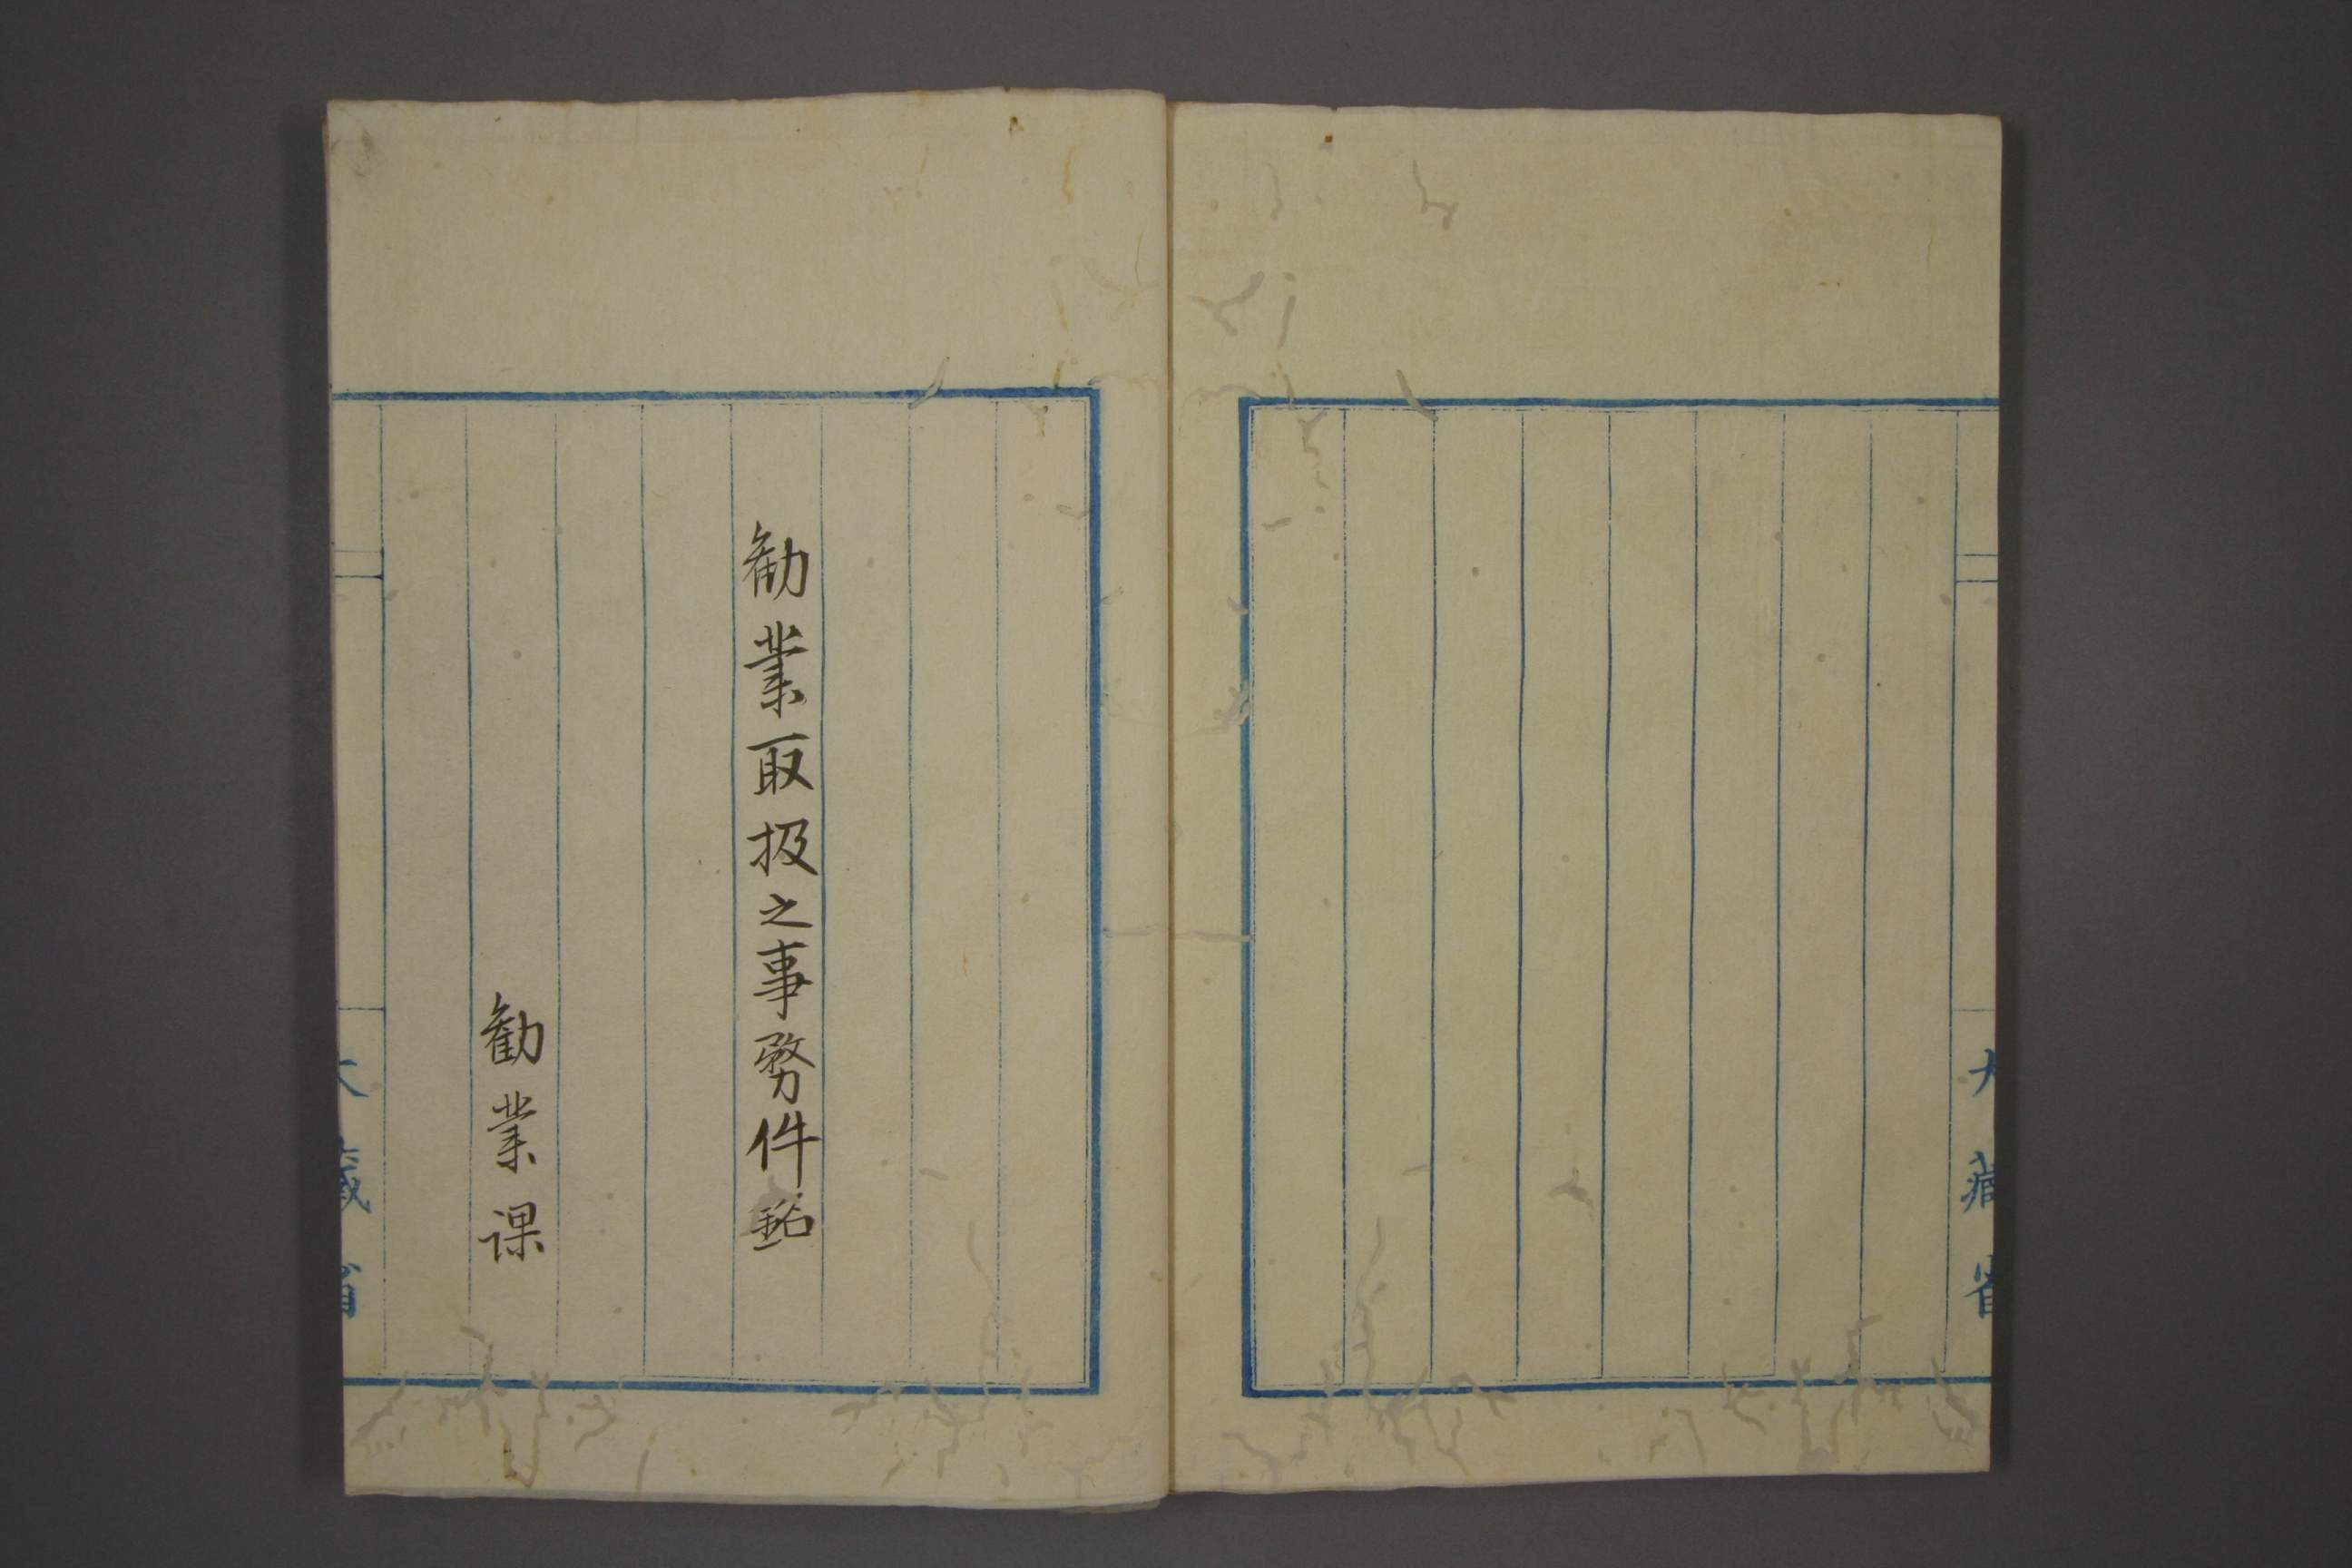 大藏省
勧業取扱之事務件銘
勧業課
大藏省